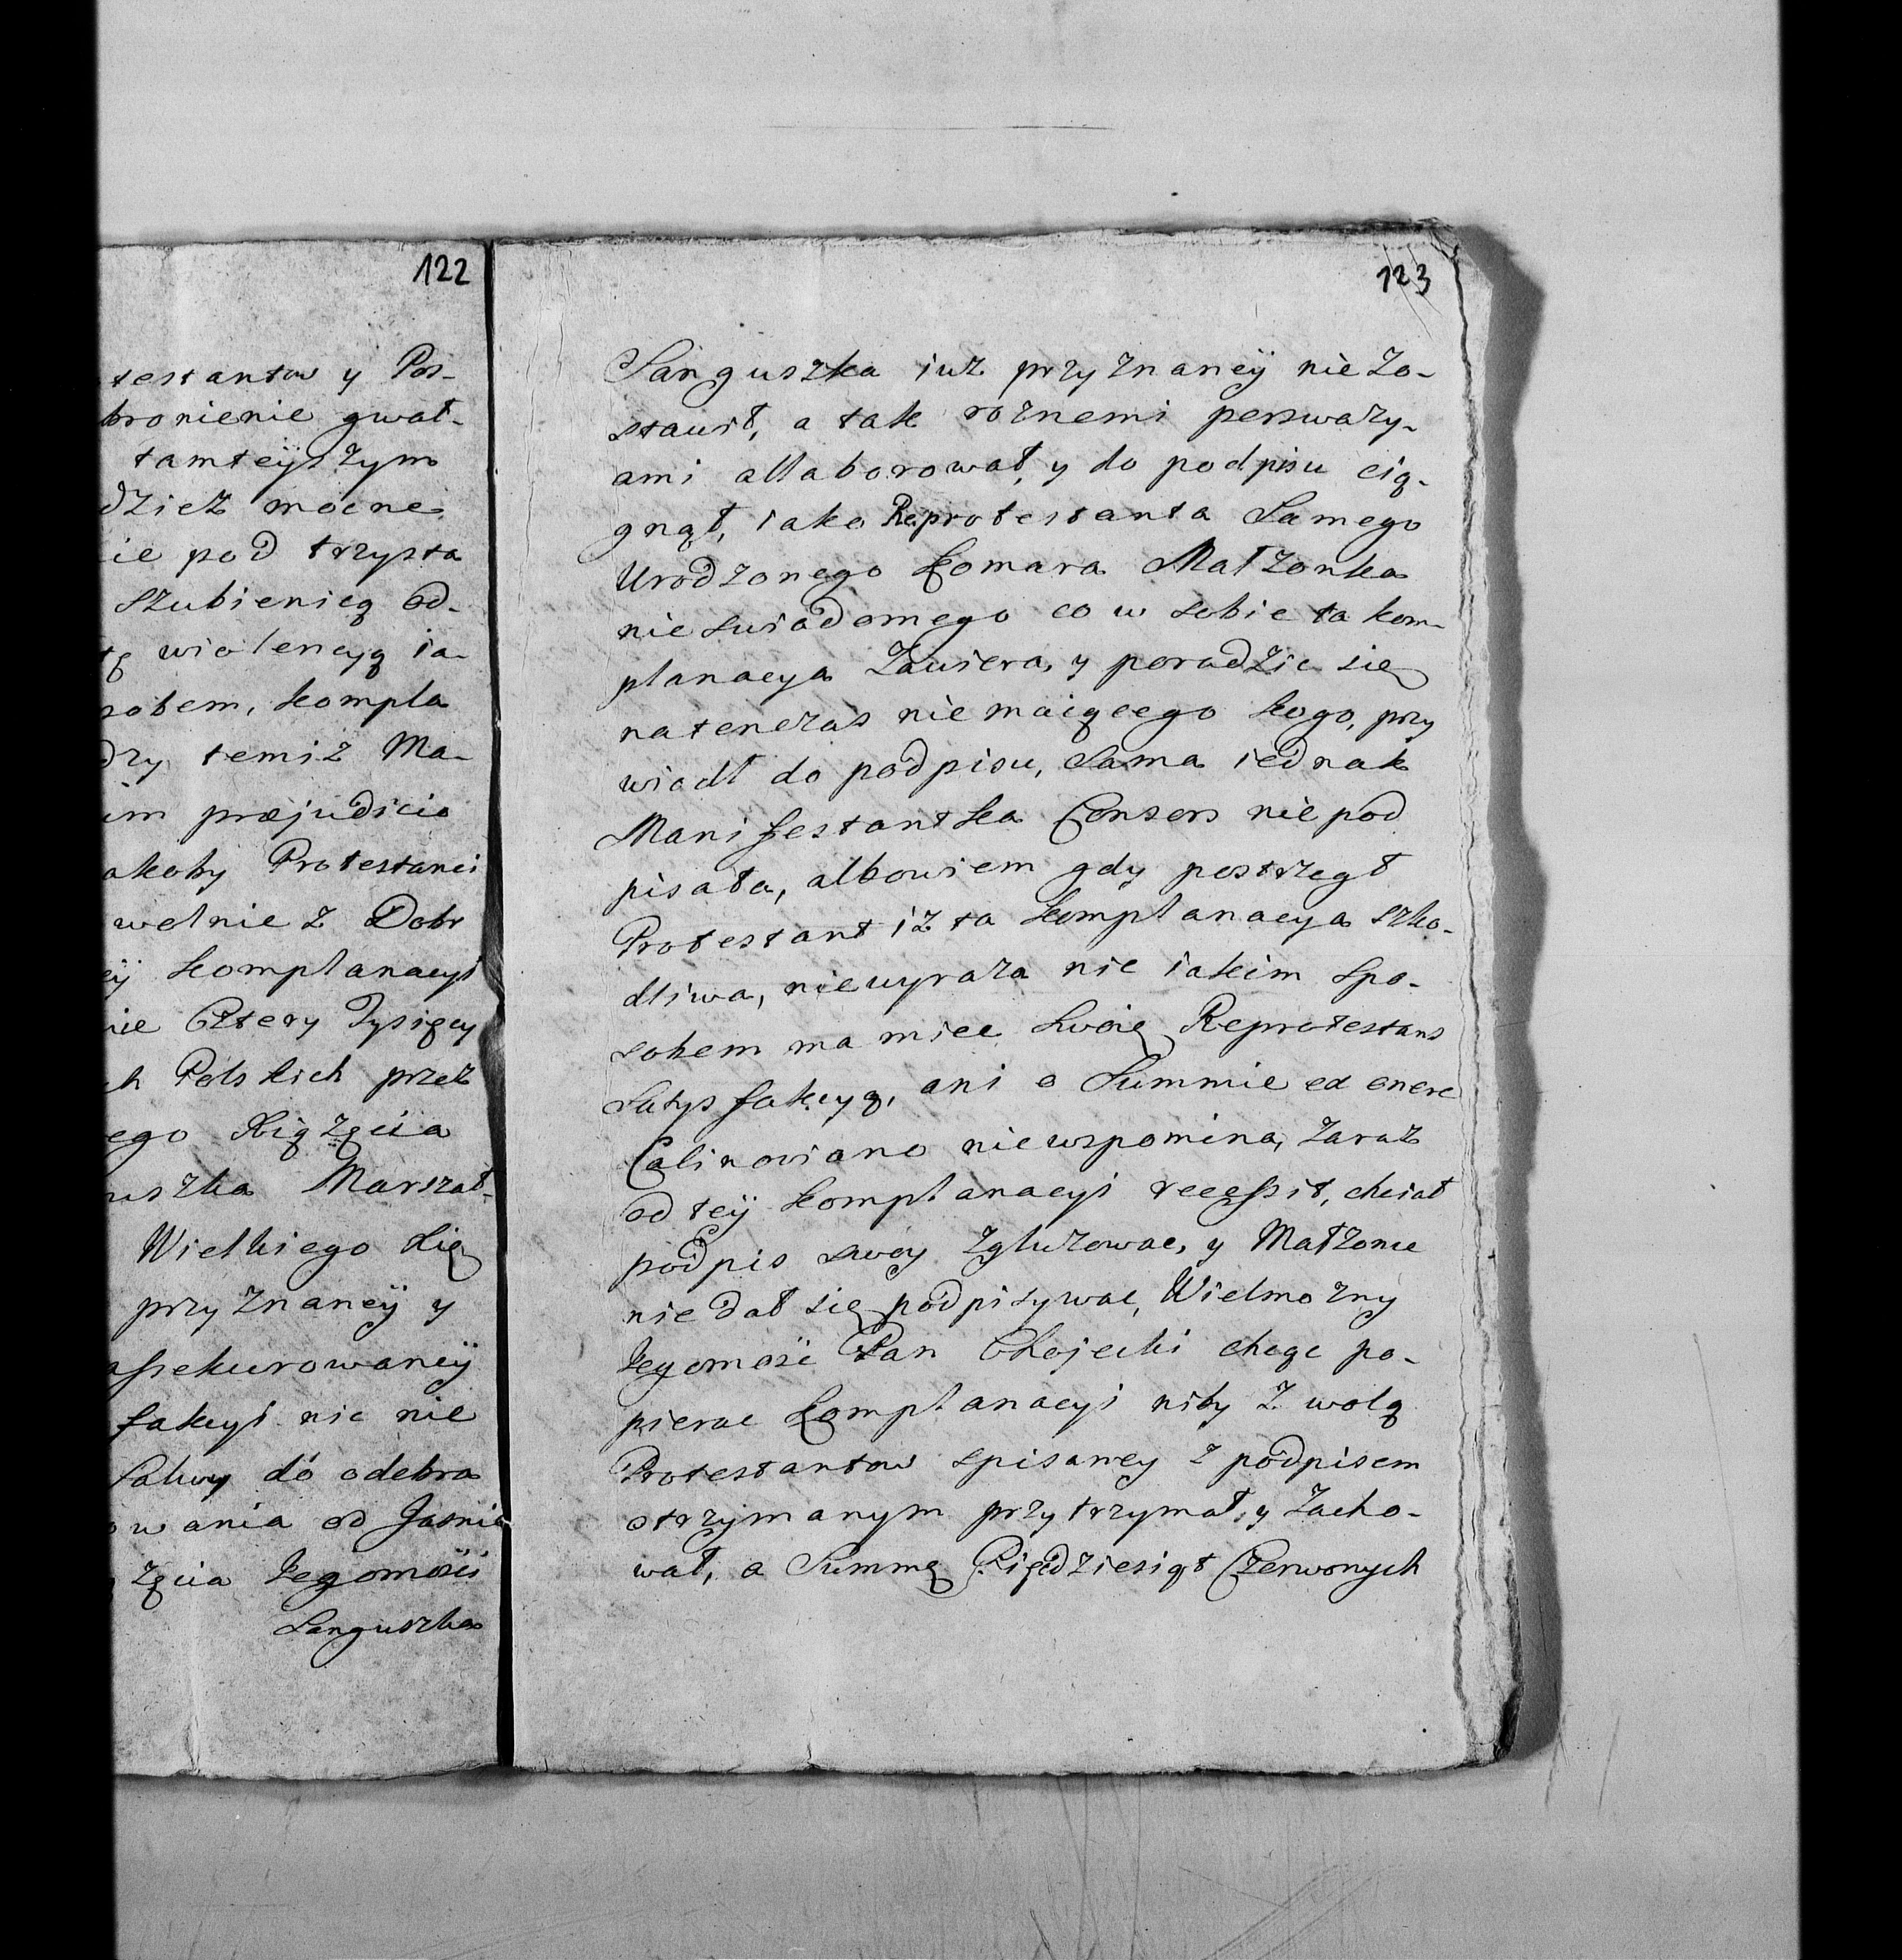 122
testantow y Pos-
bronienie gwał-
tamteÿszym
dzież mocne
ie pod trzysta
szubienicą od-
tę wiolencyą ia-
sobem, kompla
dzy temiż Ma-
im præjudicio
akoby Protestanci
wolnie z Dobr
eÿ komplanacyi
nie Cztery Tysięcy
ch Polskich przez
ego Xiążęcia
uszka Marszał-
Wielkiego Lię
przyznaneÿ y
assekurowaneÿ
fakcyi nic nie
salwy do odebra
owania od Jasnie
żęcia Jegomości
Sanguszka
123
Sanguszka iuż przyznaneÿ nie zo-
stawił, a tak rożnemi perswazy-
ami allaborował, y do podpisu cią-
gnął, iako Reprotestanta Samego
Urodzonego Komara Małżonka
nie swiadomego co w sobie ta kom-
planacya zawiera, y poradzic się
natenczas nie maiącego kogo, przy
wiodł do podpisu, Sama iednak
Manifestantka Consors nie pod
pisała, albowiem gdy postrzegł
Protestant iż ta komplanacya szko-
dliwa, niewyraza nic iakim spo-
sobem ma miec swoię Reprotestans
satysfakcyą, ani o Summie ex onere
Calinoviano niewspomina, zaraz
od teÿ komplanacyi recessit, chciał
podpis swoy zgluzowac, y Małżonce
nie dał się podpisywac, Wielmożny
Jegomość Pan Chojecki chcąc po-
pierac Komplanacyi niby z wolą
Protestantow spisaney z podpisem
otrzymanym przytrzymał, y zacho-
wał, a Summę Pięćdziesiąt Czerwonych